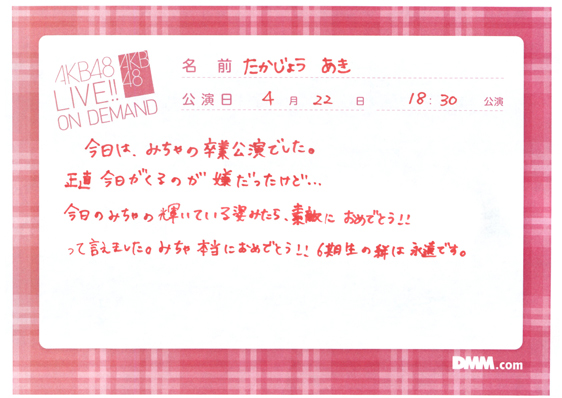 AKB48
LIVE!!
ON DEMAND
AKB
48
名 前 たかじょう あき
公演日 4 月 22 日 18:30 公演
今日は、みちゃの卒業公演でした。
正直 今日がくるのが 嫌だったけど…
今日のみちゃの輝いている姿みたら、素敵に おめでとう!!
って言えました。みちゃ 本当におめでとう!! 6期生の絆は永遠です。
DMM.com